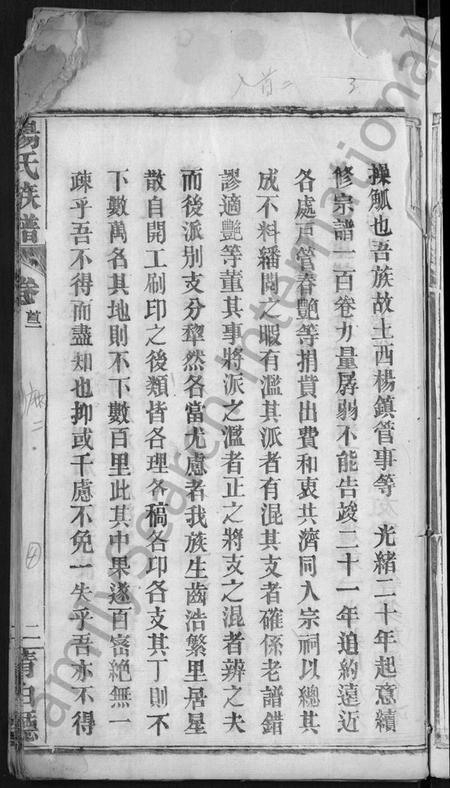 操觚也吾族故土西楊鎮管事等　光緒二十年起意續
修宗譜一百卷力量孱弱不能告竣二十一年追約遠近
各處戸營春艷等捐貲出費和衷共濟同入宗祠以總其
成不料繙閱之暇有濫其派者有混其支者確係老譜錯
謬適艷等董其事將派之濫者正之將支之混者辨之夫
而後派別支分犂然各當尤慮者我族生齒浩繁里居星
散自開工刷印之後類皆各理各稿各印各支其丁則不
下數萬名其地則不下數百里此其中果遂百密絶無一
疎乎吾不得而盡知也抑或千慮不免一失乎吾亦不得
楊氏族譜
卷首
二
清白
FamilySearch International